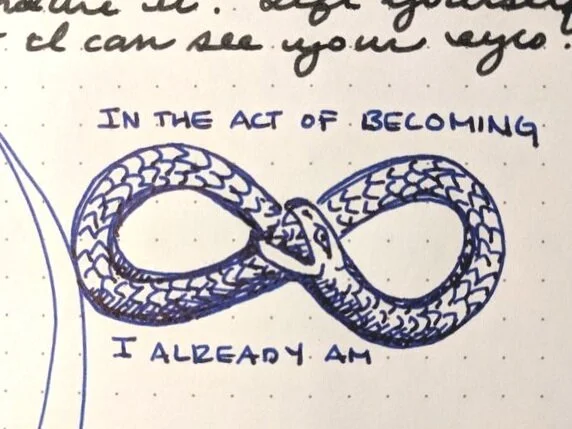 yourself
I can see your eyes.
IN THE ACT OF BECOMING
I ALREADY AM